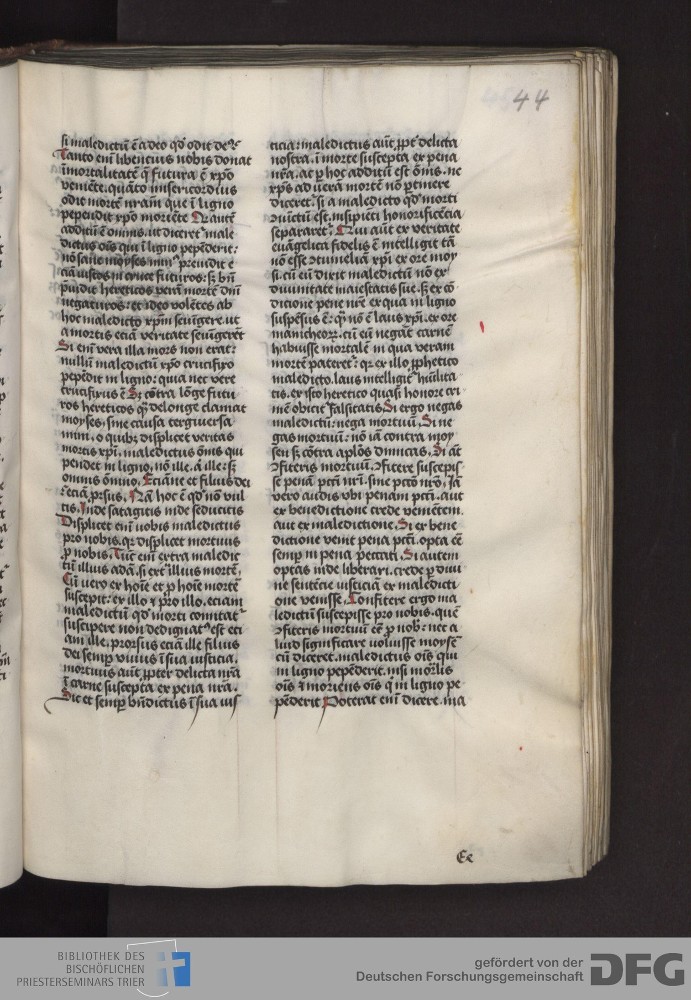 44
si maledictũ ẽ a deo qđ odit deꝰ
Tanto eni͂ libencius nobis donat
inmortalitatẽ q̃ futura ẽ xp̃o
veniẽte. quãto misericordius
odit mortẽ nr̃am que ĩ ligno
pependit xp̃o moriẽte Qr̃ autẽ
additũ ẽ omnis. ut diceret male
dictus oĩs qui ĩ ligno pepẽderit:
nõ sane moyses min᷑ p̃uidit e
ciã iustos in cruce futuros: sꝫ bñ
p̃uidit hereticos verã mortẽ dñi
negaturos: et ideo volẽtes ab
hoc maledicto xp̃m seiũgere. ut
a mortis eciã veritate seiũgerẽt
Si eni͂ vera illa mors non erat:
nullũ maledictũ xp̃o crucifixo
pepẽdit in ligno: quia nec vere
crucifixus ẽ Sꝫ cõtra lõge futu
ros hereticos q̃ȝ delonge clamat
moyses: sine causa tergiversa
mini. o quibꝫ displicet veritas
mortis xp̃i. maledictus õmis qui
pendet in ligno. nõ ille. ã ille: sꝫ
omnis õnino. Eciãne et filius dei
eciã ꝓrsus. Nã hoc ẽ qđ nõ vul
tis. Inde satagitis inde seducitis
Displicet eni͂ vobis maledictus
pro nobis. qr̃ displicet mortuus
ꝓ nobis. Tũc eni͂ extra maledic
tũ illius adã. si extᵃ illius mortẽ.
Cũ vero ex hoĩe et ꝓ hoĩe mortẽ
suscepit: ex illo ⁊ pro illo. eciam
maledictũ qđ morti comitat᷑
suscipere non dedignat᷑ est eci
am ille. prorsus eciã ille filius
dei semꝑ vivus ĩ sua iusticia.
mortuus aũt ꝓpter delicta nr̃a
ĩ carne suscepta ex pena nr̃a.
Sic et semꝑ bñdictus ĩ sua ius
ticia: maledictus aũt ꝓpt᷑ delicta
nostra. ĩ morte suscepta ex pena
nr̃a. ac ꝑ hoc additũ est õmis. ne
xp̃s ad verã mortẽ nõ ꝑtinere
diceret᷑ si a maledicto qđ morti
ꝯiũctũ est. insipiẽti honorificẽcia
separaret᷑. Qui aũt ex veritate
euãgelica fidelis ẽ intelligit tã
nõ esse ꝯtumeliã xp̃i ex ore moy
si. cũ eũ dixit maledictũ nõ ex
divinitate maiestatis sue. sꝫ ex cõ
dicione pene nr̃e ex qua in ligno
suspẽsus ẽ: q̃ȝ nõ ẽ laus xp̃i. ex ore
manicheorꝝ. cũ eũ negãt carnẽ
habuisse mortalẽ in qua veram
mortẽ pateret᷑: qr̃ ex illo ꝓphetico
maledicto. laus intelligit᷑ hũilita
tis. ex isto heretico quasi honore cri
mẽ obicit᷑ falsitatis Si ergo negas
maledictũ: nega mortuũ. Si ne
gas mortuũ: nõ iã contra moy
sen sꝫ cõtra aplõs dimicas. Si aũt
ꝯfiteris mortuũ. ꝯfitere suscepis
se penã pcti nr̃i. sine pctõ nr̃o. Iã
vero audis ubi penam pcti. aut
ex benedictione crede venientem.
aut ex maledictione. Si ex bene
dictione venit pena pcti. opta eẽ
semꝑ in pena peccati. Si autem
optas inde liberari. crede ꝑ divi
ne sentẽcie iusticiã ex maledicti
one venisse. Confitere ergo ma
ledictũ suscepisse pro nobis. quẽ
ꝯfiteris mortuũ eẽ ꝓ nobꝫ: nec a
liud significare voluisse moysẽ
cũ diceret. maledictus oĩs qui
in ligno pepẽderit. nisi mort̃lis
oĩs ⁊ moriens oĩs q̃ in ligno pe
pẽderit Poterat eni͂ dicere. ma
Ee
BIBLIOTHEK DES
BISCHÖFLICHEN
PRIESTERSEMINARS TRIER
gefördert von der
Deutschen Forschungsgemeinschaft
DFG